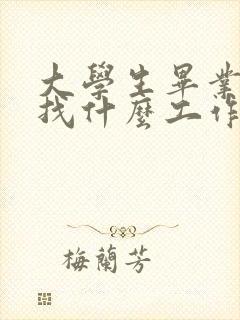 大學生畢業
找什麼工作
梅蘭芳